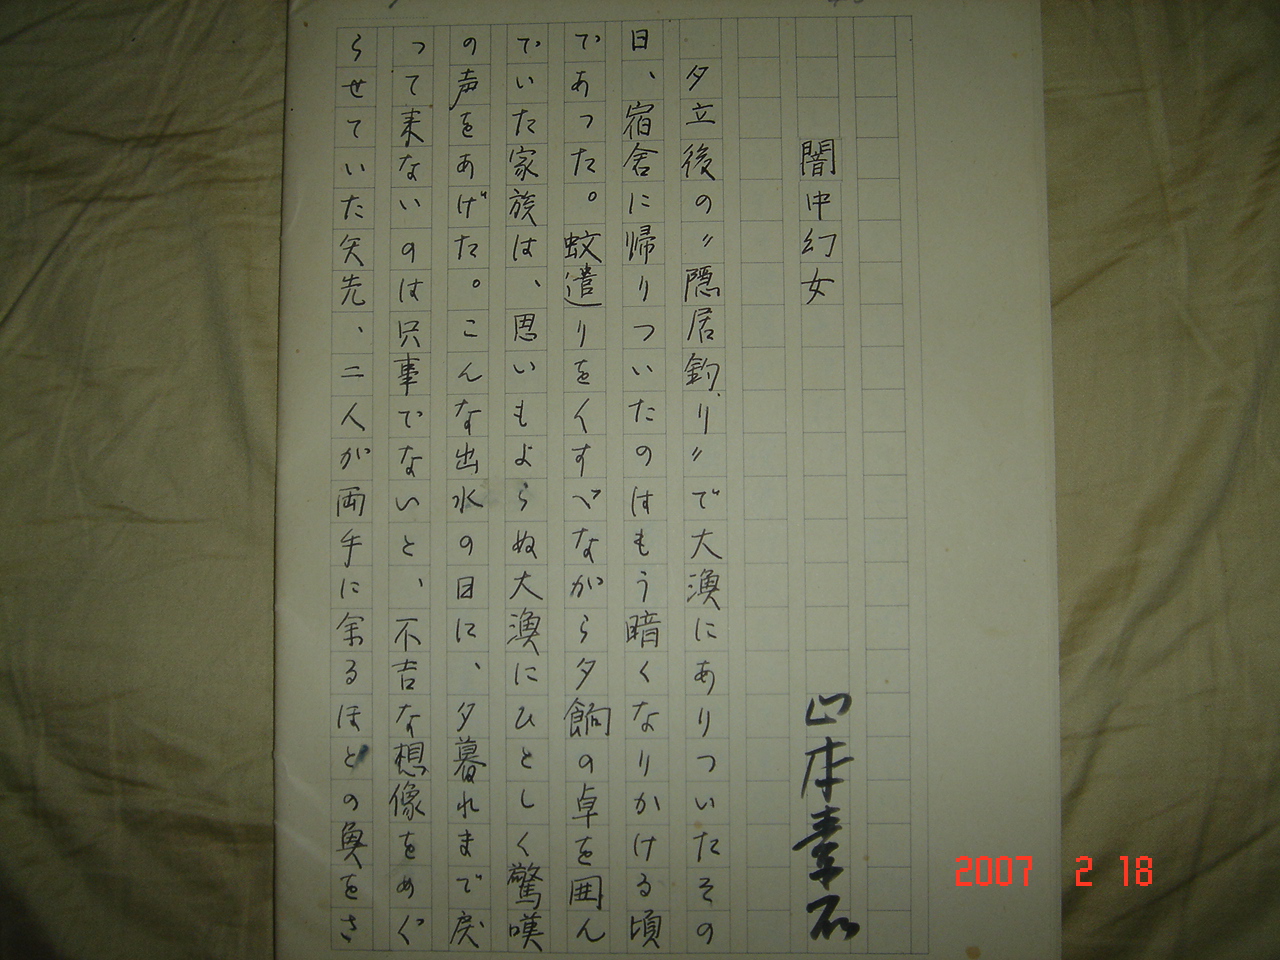 闇中幻女
山本素石
夕立後の〃隠居釣り〃で大漁にありついたその
日、宿舎に帰りついたのはもう暗くなりかける頃
であった。蚊遣りをくすべながら夕餉の卓を囲ん
でいた家族は、思いもよらぬ大漁にひとしく驚嘆
の声をあげた。こんな出水の日に、夕暮れまで戻
って来ないのは只事でないと、不吉な想像をめぐ
らせていた矢先、二人が両手に余るほどの魚をさ
2007 2 18